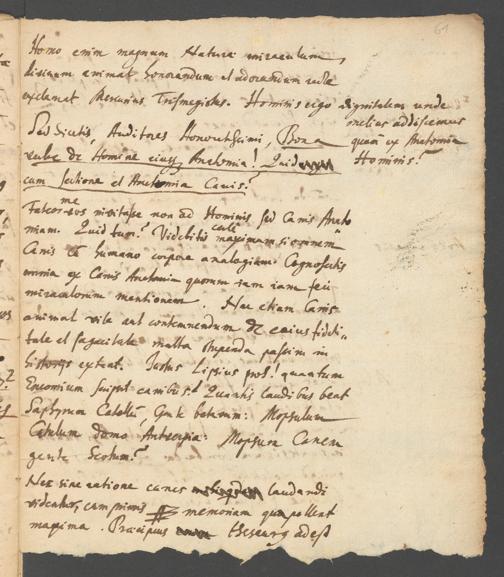 61
Homo enim magnum Naturæ miraculum,
divinum animal honorandum et adorandum
exclamat Mercurius Trismegistus. Hominis ergo dignitatem unde
melius addiscemus
quam ex Anatomia
Hominis?
Sed dicitis, Auditores Honoratissimi, Bona
de Homine ejusq Anatomia! Quid
cum sectione et Anatomia Canis?
Fateor me vos invitasse non ad Hominis sed Canis Anato
miam. Quid tum? Videbitis maximam si omnem
Canis cum humano corpore analogiam. Cognoscetis
omnia ex Canis Anatomia quorum jam jam feci
miraculorum mentionem. Nec etiam Canis
animal vile aut contemnendum de cujus fideli,,
tate et sagacitate multa stupenda passim in
historijs extant. Justus Lipsius quantum
Encomium scripsit canibus? Quantis laudibus beat
Saphyrum Catellum: Mopsulum
Catulum domo Antverpia: Mopsum Canem
gente Scotum?
Nec sine ratione canes laudandi
videntur, cum primis memoriam qua pollent
maxima. Præcipuus adest